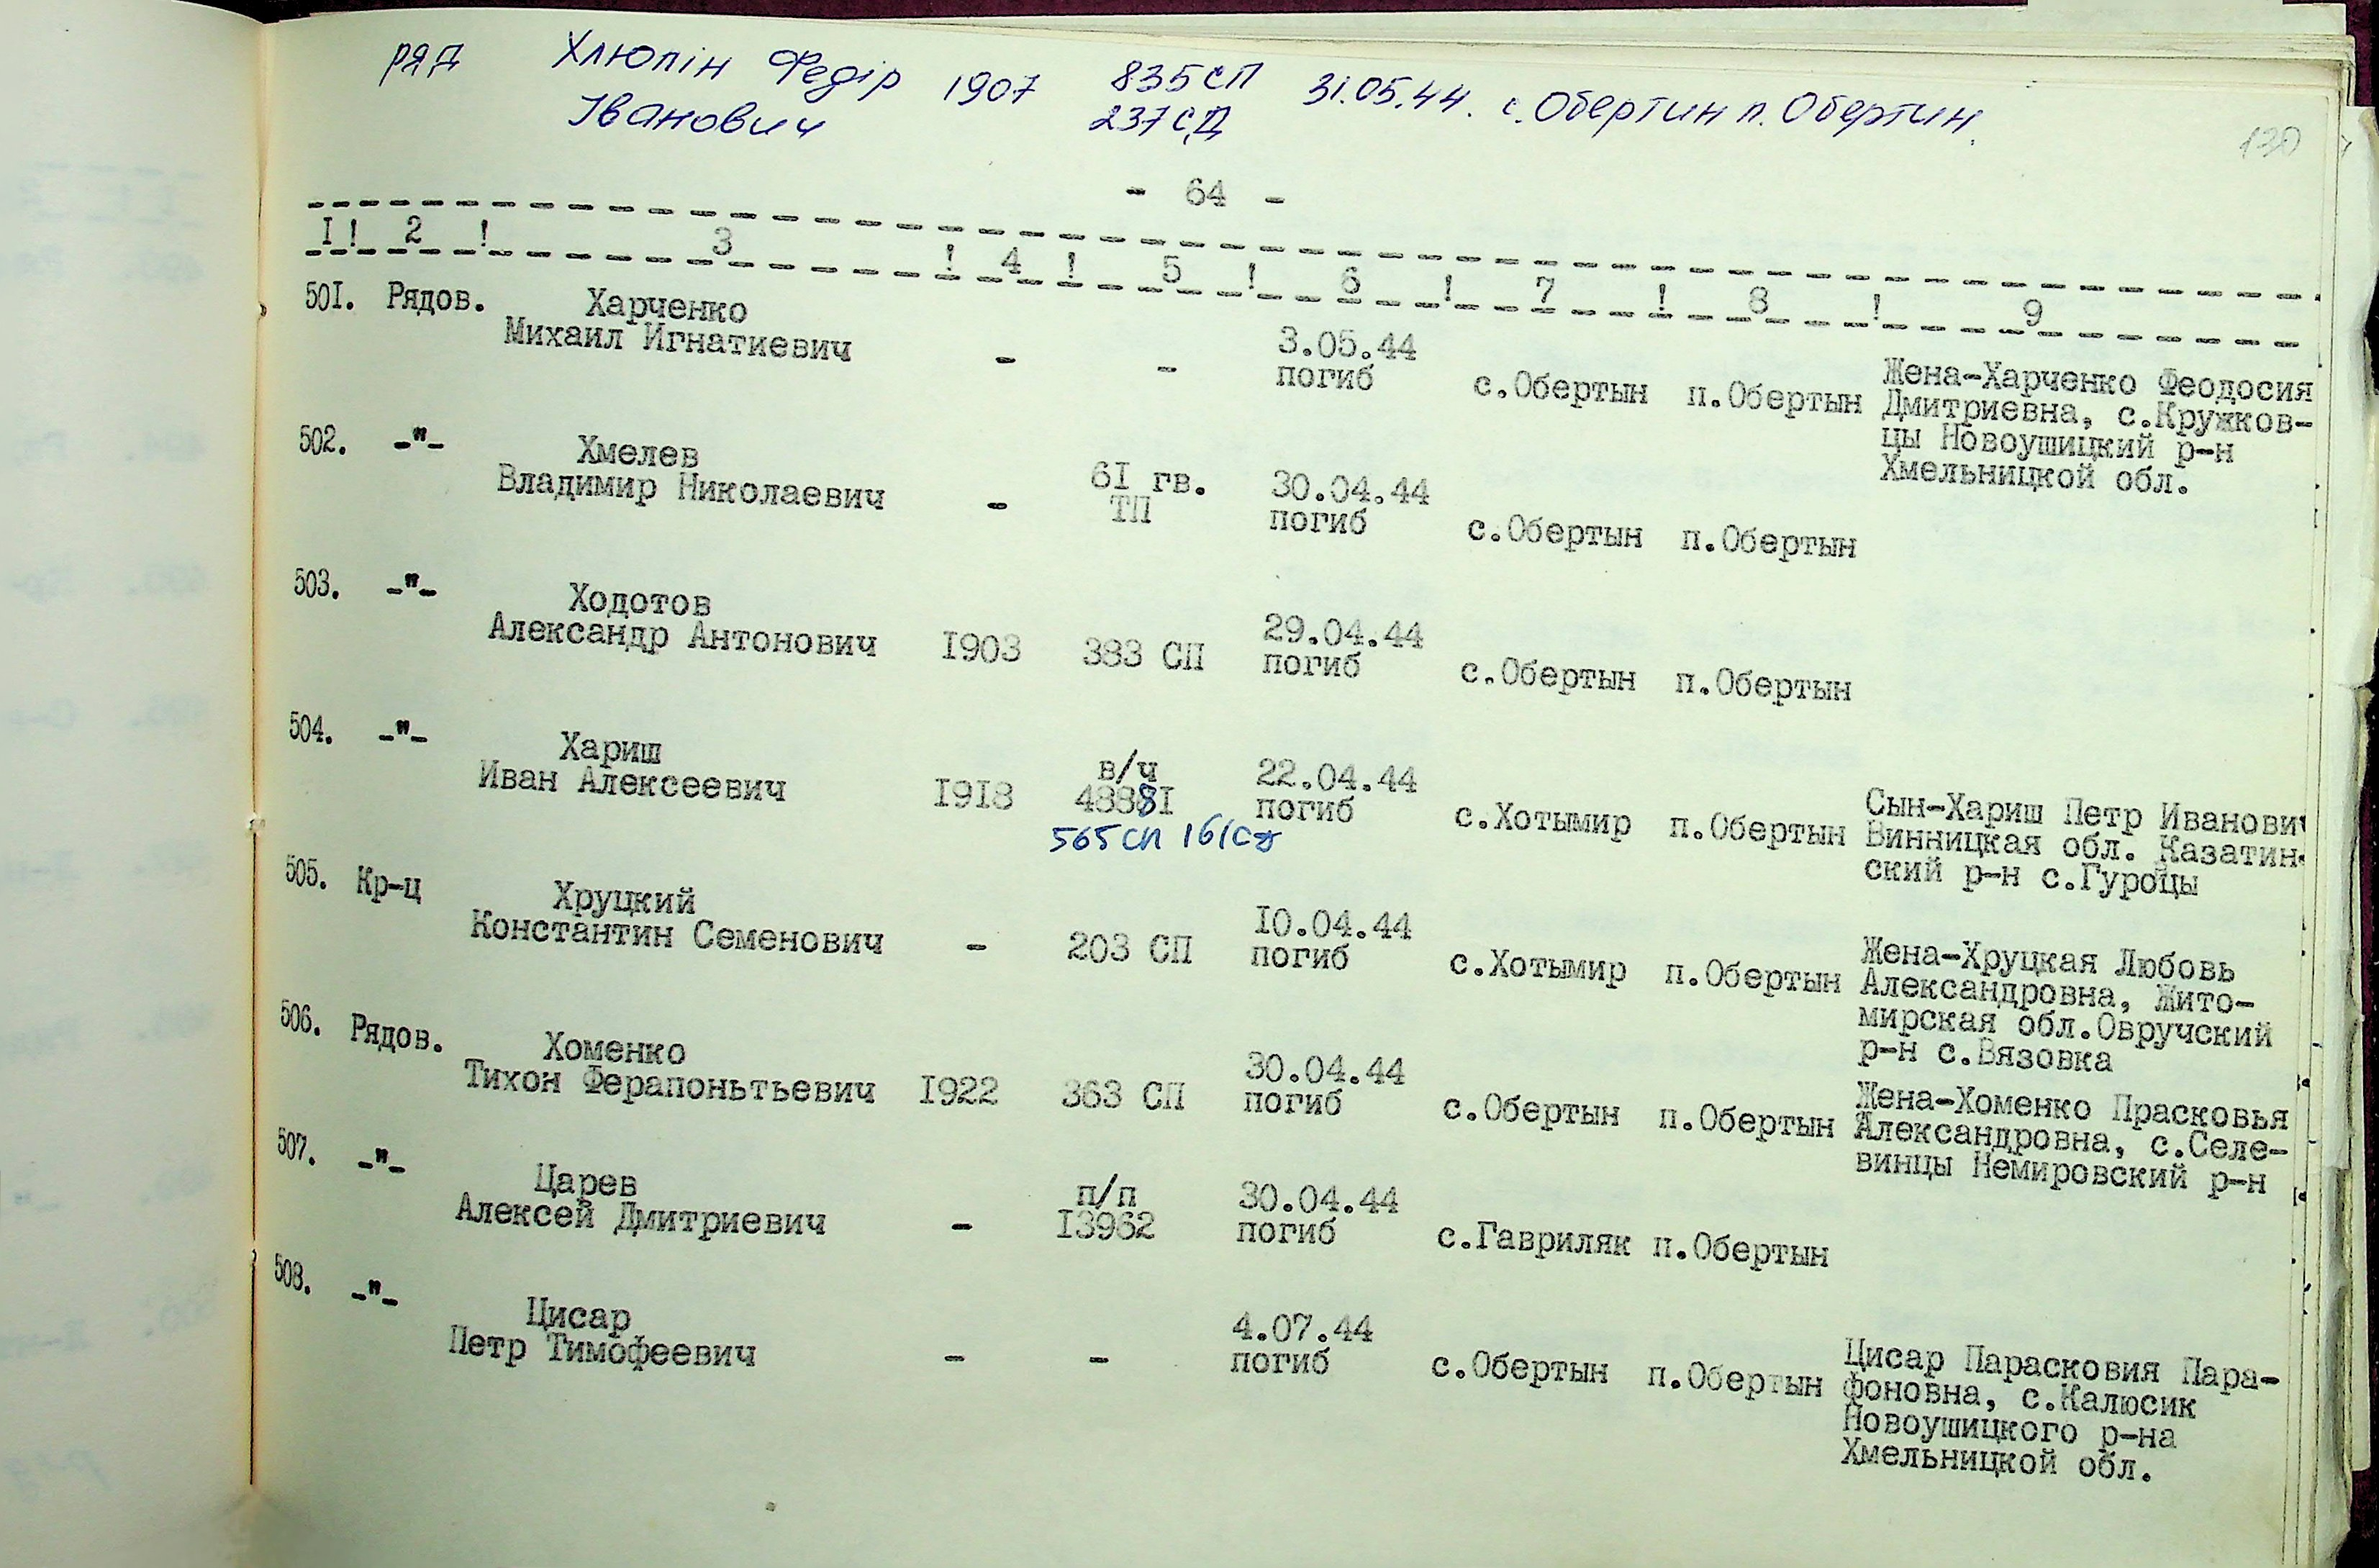 ряд Хлюпін Федір 1907 835 СП 31.05.44. с.Обертин п. Обертин.
Іванович 237 СД
130
- 64 -
I ! 2 ! 3 ! 4 ! 5 ! 6 ! 7 ! 8 ! 9
501. Рядов. Харченко
Михаил Игнатиевич - - 3.05.44
погиб с.Обертын п.Обертын Жена-Харченко Феодосия
Дмитриевна, с.Кружков-
цы Новоушицкий р-н
Хмельницкой обл.
502. -"- Хмелев
Владимир Николаевич - 6I гв.
ТП 30.04.44
погиб с.Обертын п.Обертын
503. -"- Ходотов
Александр Антонович I903 383 СП 29.04.44
погиб с.Обертын п.Обертын
504. -"- Хариш
Иван Алексеевич I918 в/ч
48881 22.04.44
погиб с.Хотымир п.Обертын Сын-Хариш Петр Иванович
565 сп 161 сд Винницкая обл. Казатин-
ский р-н с.Гуроцы
505. Кр-ц Хруцкий
Константин Семенович - 203 СП I0.04.44
погиб с.Хотымир п.Обертын Жена-Хруцкая Любовь
Александровна, Жито-
мирская обл.Овручский
р-н с.Вязовка
506. Рядов. Хоменко
Тихон Ферапоньтьевич I922 363 СП 30.04.44
погиб с.Обертын п.Обертын Жена-Хоменко Прасковья
Александровна, с.Селе-
винцы Немировский р-н
507. -"- Царев
Алексей Дмитриевич - п/п
I3962 30.04.44
погиб с.Гавриляк п.Обертын
508. -"- Цисар
Петр Тимофеевич - - 4.07.44
погиб с.Обертын п.Обертын Цисар Парасковия Пара-
фоновна, с.Калюсик
Новоушицкого р-на
Хмельницкой обл.